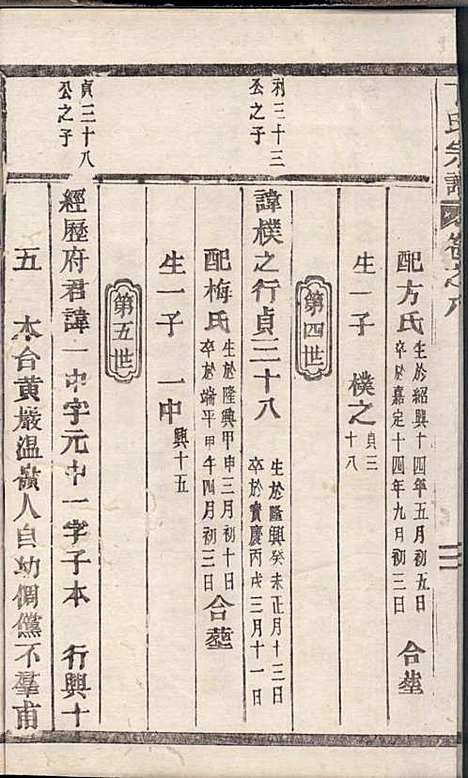 氏宗譜 卷之八
配方氏 生於紹興十四年五月初五日 卒於嘉定十四年九月初三日 合塟
生一子 樸之 貞三十八
第四世
利三十三公之子
諱樸之行貞三十八 生於隆興癸未正月十三日 卒於寶慶丙戌三月十一日
配梅氏 生於隆興甲申三月初十日 卒於端平甲午四月初三日 合塟
生一子 一中 興十五
第五世
貞三十八公之子
經歷府君諱一中字元中一字子本 行興十
五 本台黃巖溫嶺人自幼倜儻不羣甫